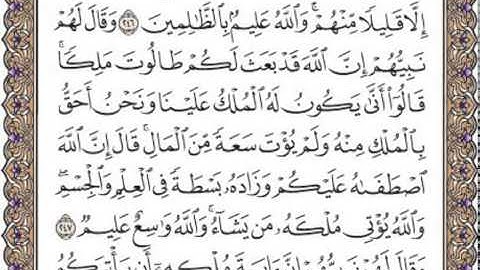 إِلَّا قَلِيلًا مِّنْهُمْ ۗ وَاللَّهُ عَلِيمٌ بِالظَّالِمِينَ ٢٤٦ وَقَالَ لَهُمْ
نَبِيُّهُمْ إِنَّ اللَّهَ قَدْ بَعَثَ لَكُمْ طَالُوتَ مَلِكًا ۚ
قَالُوٓا۟ أَنَّىٰ يَكُونُ لَهُ الْمُلْكُ عَلَيْنَا وَنَحْنُ أَحَقُّ
بِالْمُلْكِ مِنْهُ وَلَمْ يُؤْتَ سَعَةً مِّنَ الْمَالِ ۚ قَالَ إِنَّ اللَّهَ
اصْطَفَىٰهُ عَلَيْكُمْ وَزَادَهُۥ بَسْطَةً فِي الْعِلْمِ وَالْجِسْمِ ۖ
وَاللَّهُ يُؤْتِي مُلْكَهُۥ مَن يَشَآءُ ۚ وَاللَّهُ وَٰسِعٌ عَلِيمٌ ٢٤٧
وَقَالَ لَهُمْ نَبِيُّهُمْ إِنَّ ءَايَةَ مُلْكِهِۦٓ أَن يَأْتِيَكُمُ